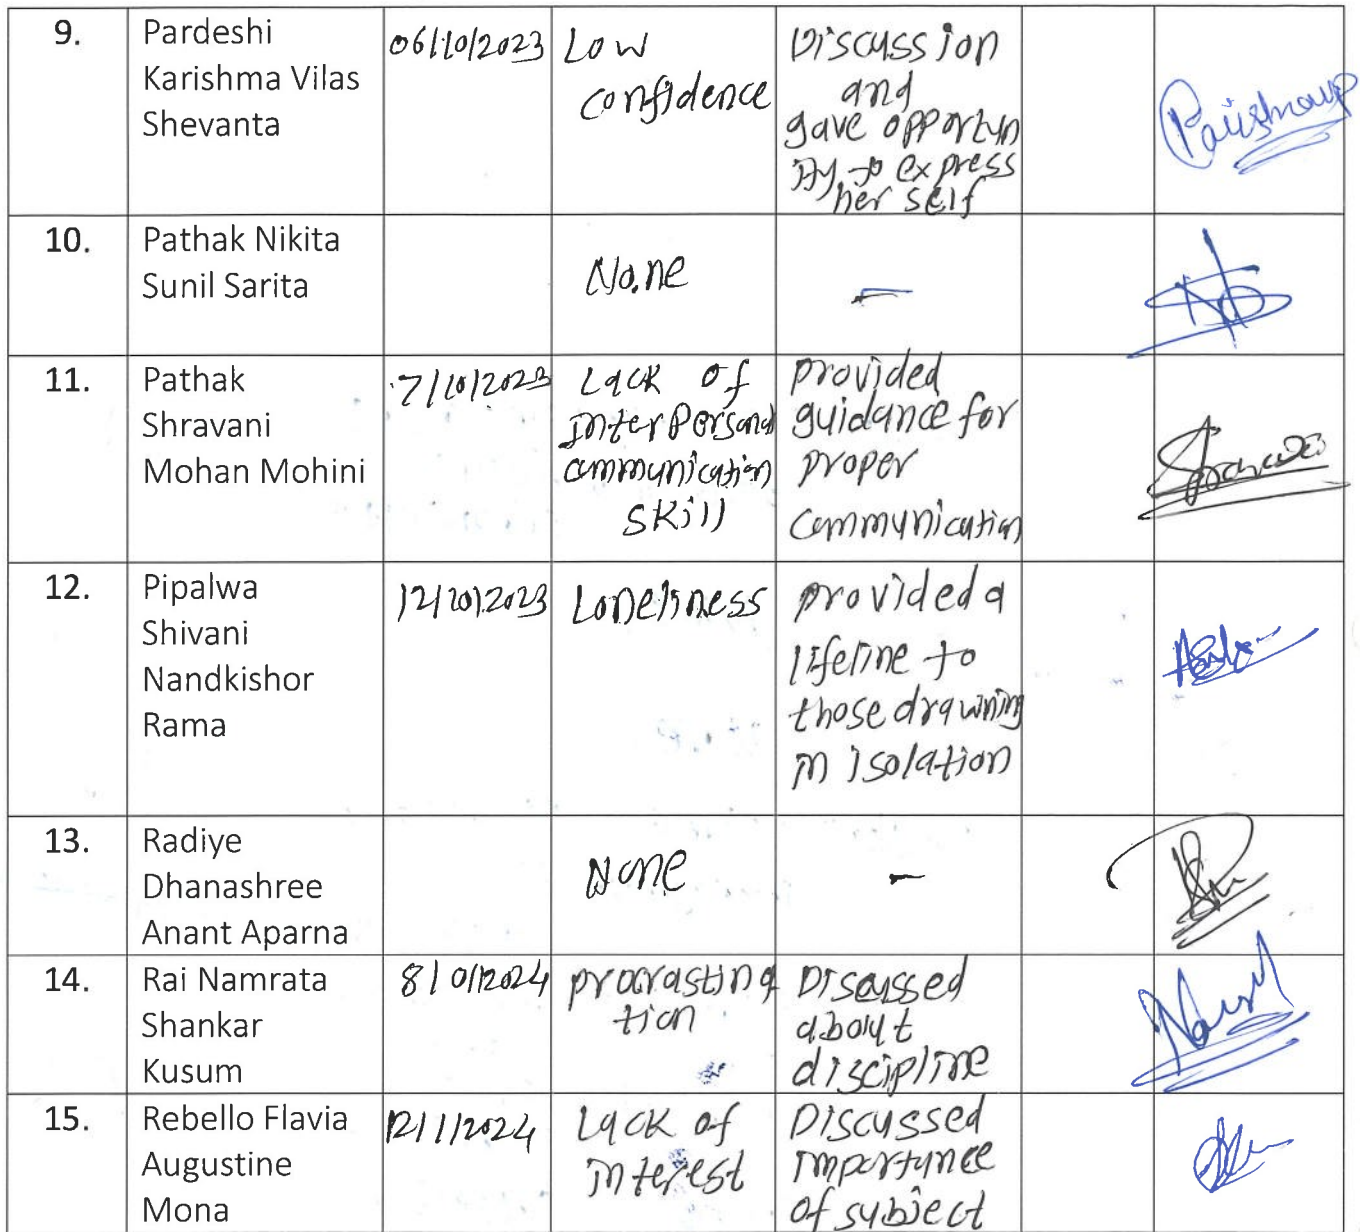 9.
Pardeshi
Karishma Vilas
Shevanta
06/10/2023
Low
confidence
Discussion
and
gave opportun
ity to express
her self
10.
Pathak Nikita
Sunil Sarita
None
-
11.
Pathak
Shravani
Mohan Mohini
7/10/2023
Lack of
Interpersonal
communication
skill
provided
guidance for
proper
communication
12.
Pipalwa
Shivani
Nandkishor
Rama
12/10/2023
Loneliness
provided a
lifeline to
those drawning
in isolation
13.
Radiye
Dhanashree
Anant Aparna
None
-
14.
Rai Namrata
Shankar
Kusum
8/01/2024
procrastina
tion
Discussed
about
discipline
15.
Rebello Flavia
Augustine
Mona
12/1/2024
Lack of
interest
Discussed
importance
of subject